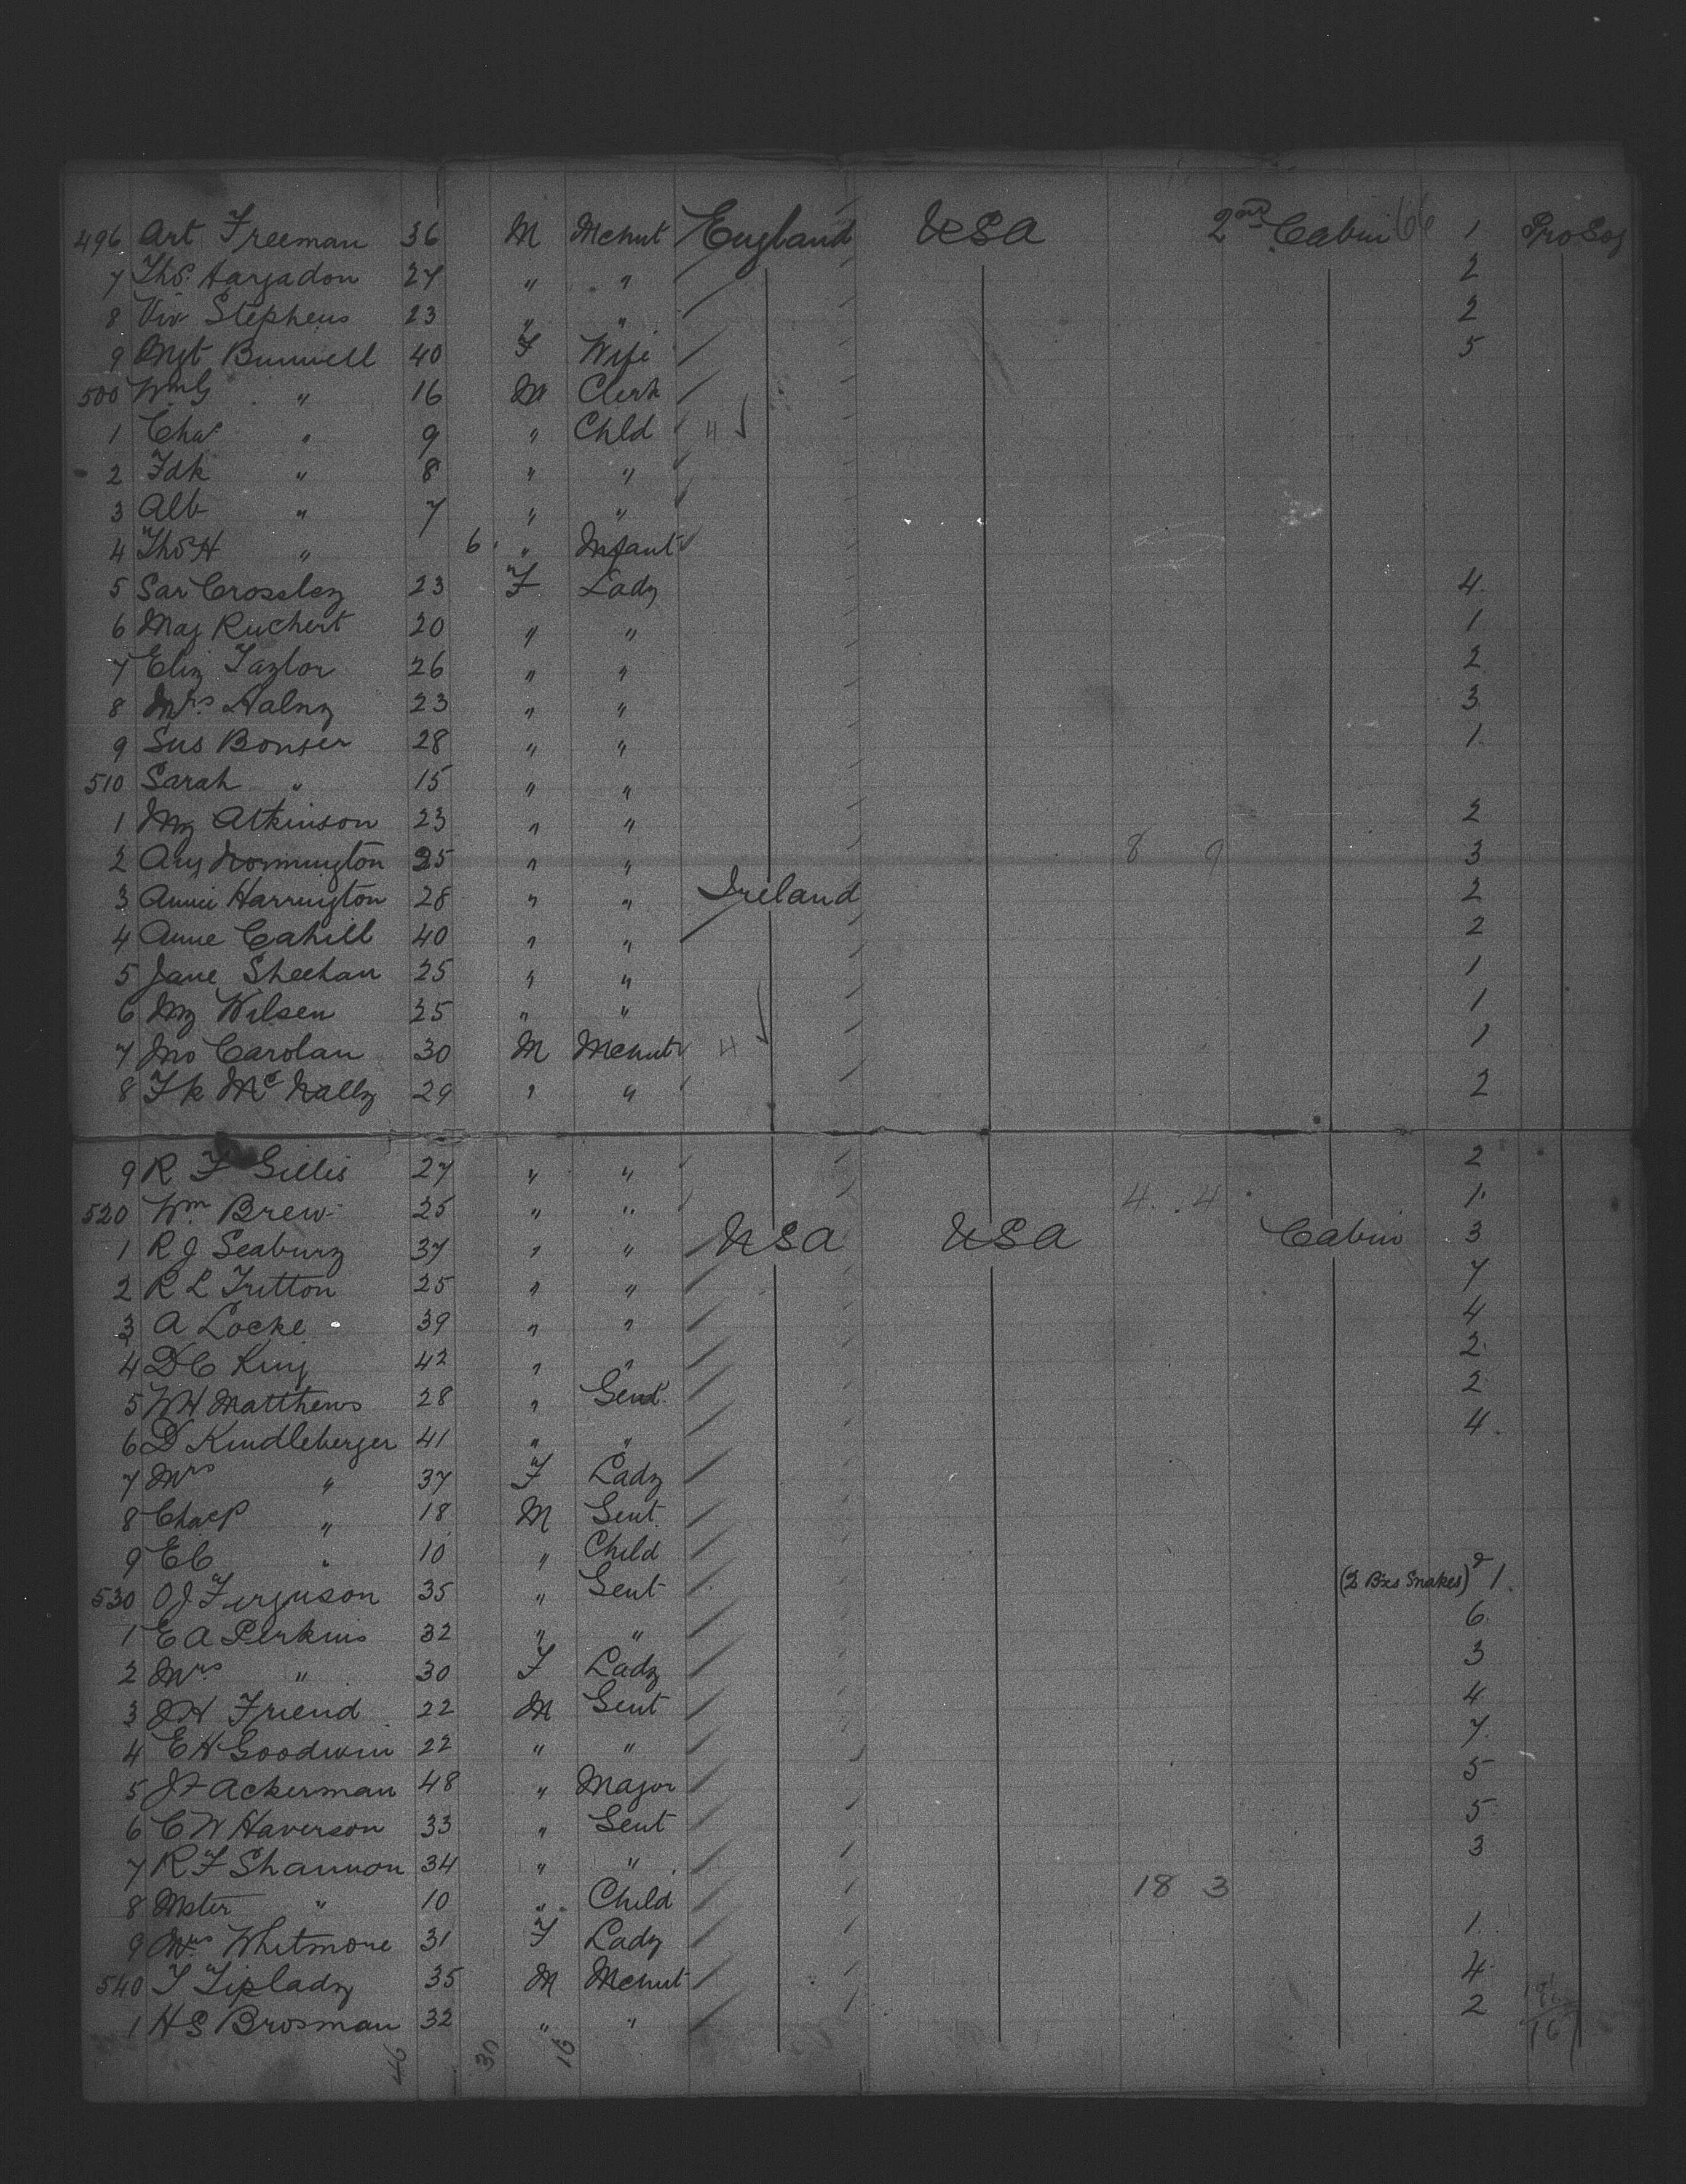 496 Art Freeman 36 M Mchnt England USA 2nd Cabin 66 1 Pro Soj
7 Thos Hargadon 27 " " 2
8 Viv Stephens 23 " " 2
9 Mgt Bunnell 40 F Wife 5
500 Wm G " 16 M Clerk
1 Chas " 9 " Chld 4
2 Fdk " 8 " "
3 Alb " 7 " "
4 Thos H " 6 " Infant
5 Sar Crossley 23 F Lady 4
6 May Ruchert 20 " " 1
7 Eliz Taylor 26 " " 2
8 Mrs Halny 23 " " 3
9 Sus Bonser 28 " " 1
510 Sarah " 15 " "
1 My Atkinson 23 " " 2
2 Any Normington 25 " " 8 9 3
3 Annie Harrington 28 " " Ireland 2
4 Anne Cahill 40 " " 2
5 Jane Sheehan 25 " " 1
6 My Wilsen 25 " " 1
7 Jno Carolan 30 M Mchnt 4 1
8 Fk McNally 29 " " 2
9 R F Gillis 27 " " 2
520 Wm Brew 25 " " 4 4 1
1 R J Seabury 37 " " USA USA Cabin 3
2 R L Tritton 25 " " 7
3 A Locke 39 " " 4
4 D C King 42 " " 2
5 W H Matthews 28 " Gent 2
6 D Kindleberger 41 " " 4
7 Mrs " 37 F Lady
8 Chas P " 18 M Gent
9 E C " 10 " Child
530 O J Ferguson 35 " Gent (2 Bxs Snakes) 2 1
1 E A Perkins 32 " " 6
2 Mrs " 30 F Lady 3
3 J H Friend 22 M Gent 4
4 E H Goodwin 22 " " 7
5 J F Ackerman 48 " Major 5
6 C W Haverson 33 " Gent 5
7 R F Shannon 34 " " 3
8 Mster " 10 " Child 18 3
9 Mrs Whitmore 31 F Lady 1
540 T Tiplady 35 M Mchnt 4
1 H S Brosman 32 " " 2
46 30 16